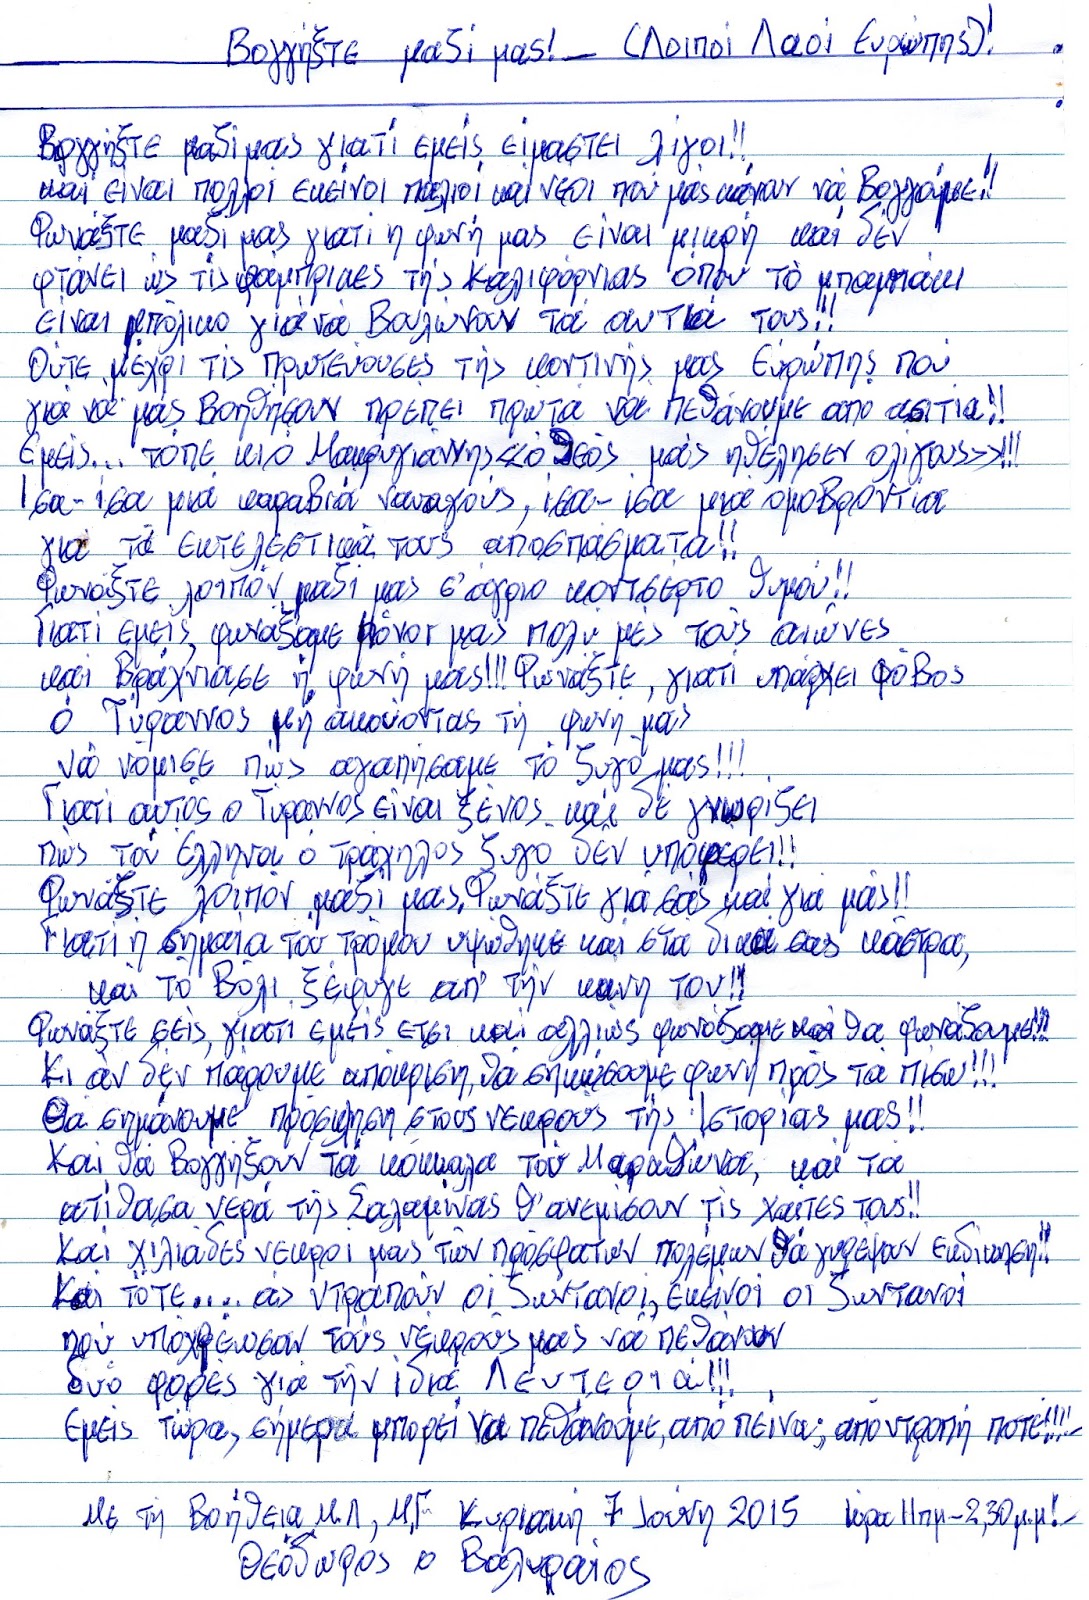 Βογγήξτε μαζί μας! – (Λοιποί Λαοί Ευρώπης)!
Βογγήξτε μαζί μας γιατί εμείς είμαστει λίγοι!!
καί είναι πολλοί εκείνοι παλιοί καί νέοι πού μάς κάνουν νά Βογγάμε!!
Φωνάξτε μαζί μας γιατί η φωνή μας είναι μικρή καί δέν
φτάνει ώς τίς φάμπρικες τής Καλιφόρνιας όπου τό μπαμπάκι
είναι μπόλικο γιά νά Βουλώνουν τά αυτιά τους!!
Ούτε μέχρι τίς πρωτεύουσες τής κοντινής μας Ευρώπης πού
γιά νά μάς Βοηθήσουν πρέπει πρώτα νά πεθάνουμε από ασιτία!!
Εμείς... τόπε κι ό Μακρυγιάννης <<ό θεός μάς ηθέλησεν ολίγους>>!!!
Ίσα-ίσα μιά καραβιά ναυαγούς, ίσα-ίσα μιά ομοβροντία
γιά τά εκτελεστικά τους αποσπάσματα!!
Φωνάξτε λοιπόν μαζί μας σ' άγριο κοντσέρτο θυμού!!
Γιατί εμείς, φωνάξαμε μόνοι μας πολύ μές τούς αιώνες
καί Βράχνιασε ή φωνή μας!!! Φωνάξτε, γιατί υπάρχει φόΒος
ό Τύραννος μή ακούοντας τή φωνή μας
νά νόμισε πώς αγαπήσαμε τό ζυγό μας!!!
Γιατί αυτός ο Τύραννος είναι ξένος καί δέ γνωρίζει
πώς τού έλληνα ο τράχηλος ζυγό δέν υποφέρει!!
Φωνάξτε λοιπόν μαζί μας. Φωνάξτε γιά σάς καί γιά μάς!!
Γιατί ή σημαία τού τρόμου υψώθηκε καί στά δικά σας κάστρα,
καί τό Βόλι ξέφυγε απ' τήν κάνη του!!
Φωνάξτε σείς, γιατί εμείς έτσι καί αλλιώς φωνάξαμε καί θά φωνάξαμε!!!
Κι άν δέν πάρουμε απόκριση, θά σηκώσουμε φωνή πρός τά πίσω!!!
Θά σημάνουμε πρόσκληση στους νεκρούς τής Ιστορίας μας!!
Καί θά Βογγήξουν τά κόκκαλα τού Μαραθώνα, καί τά
ατίθασα νερά τής Σαλαμίνας θ' ανεμίσουν τίς χαίτες τους!!
Καί χιλιάδες νεκροί μας τών πρόσφατων πολέμων θά γυρέψουν εκδίκηση!!
Καί τότε.... άς ντραπούν οί ζωντανοί, εκείνοι οί ζωντανοί
πού υποχρέωσαν τούς νεκρούς μας νά πεθάνουν
δυό φορές γιά τήν ίδια Λευτεριά!!!
Εμείς τώρα, σήμερα μπορεί νά πεθάνουμε, από πείνα; από ντροπή ποτέ!!!!-
Με τή Βοήθεια Μ.Λ, Μ.Γ. Κυριακή 7 Ιούνη 2015 ώρα 11πμ-2,30μ.μ!-
Θεόδωρος ο